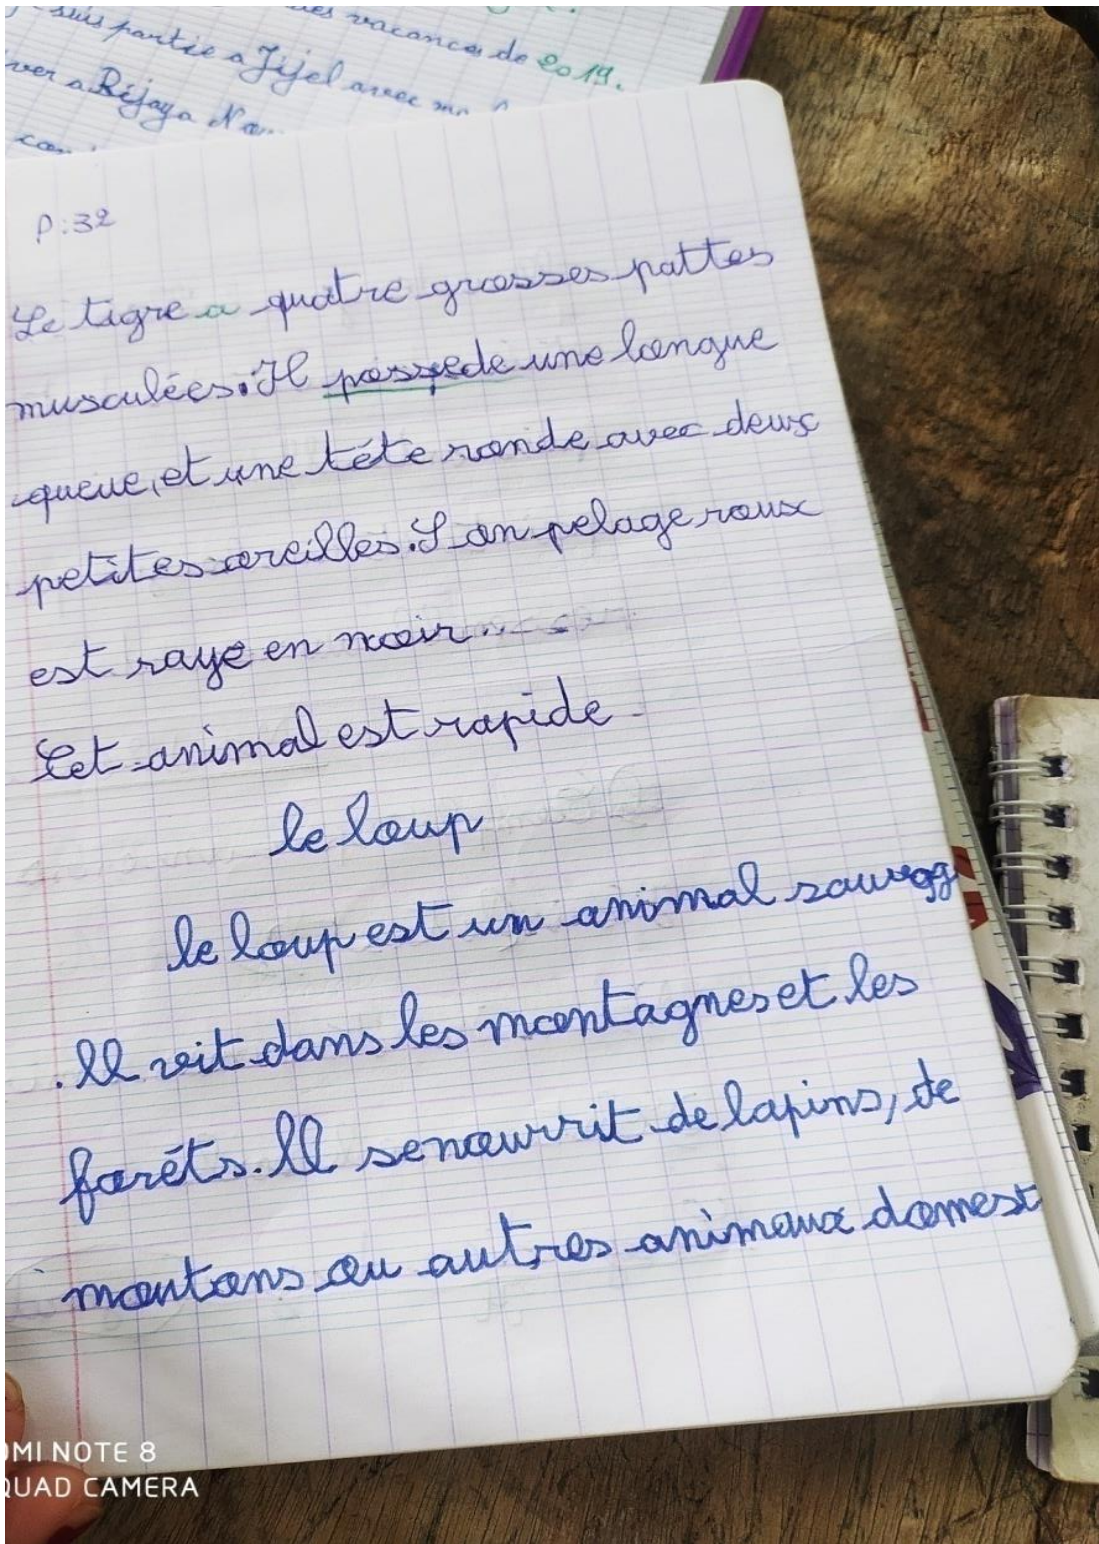 vacances de 2019.
suis partie a Jijel avec
a Bejaya
P:32
Le tigre a quatre grosses pattes
musculées. Il possède une longue
queue, et une tête ronde avec deux
petites oreilles. Son pelage roux
est rayé en noir.
Cet animal est rapide
le loup
le loup est un animal sauvag
. Il vit dans les montagnes et les
forêts. Il se nourrit de lapins, de
moutons ou autres animaux domest
OMI NOTE 8
QUAD CAMERA